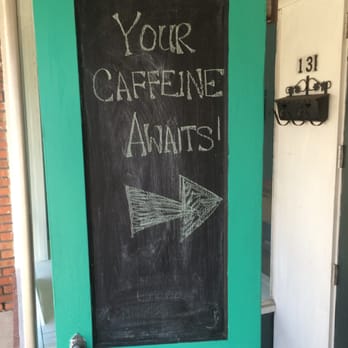 YOUR
CAFFEINE
AWAITS!
131